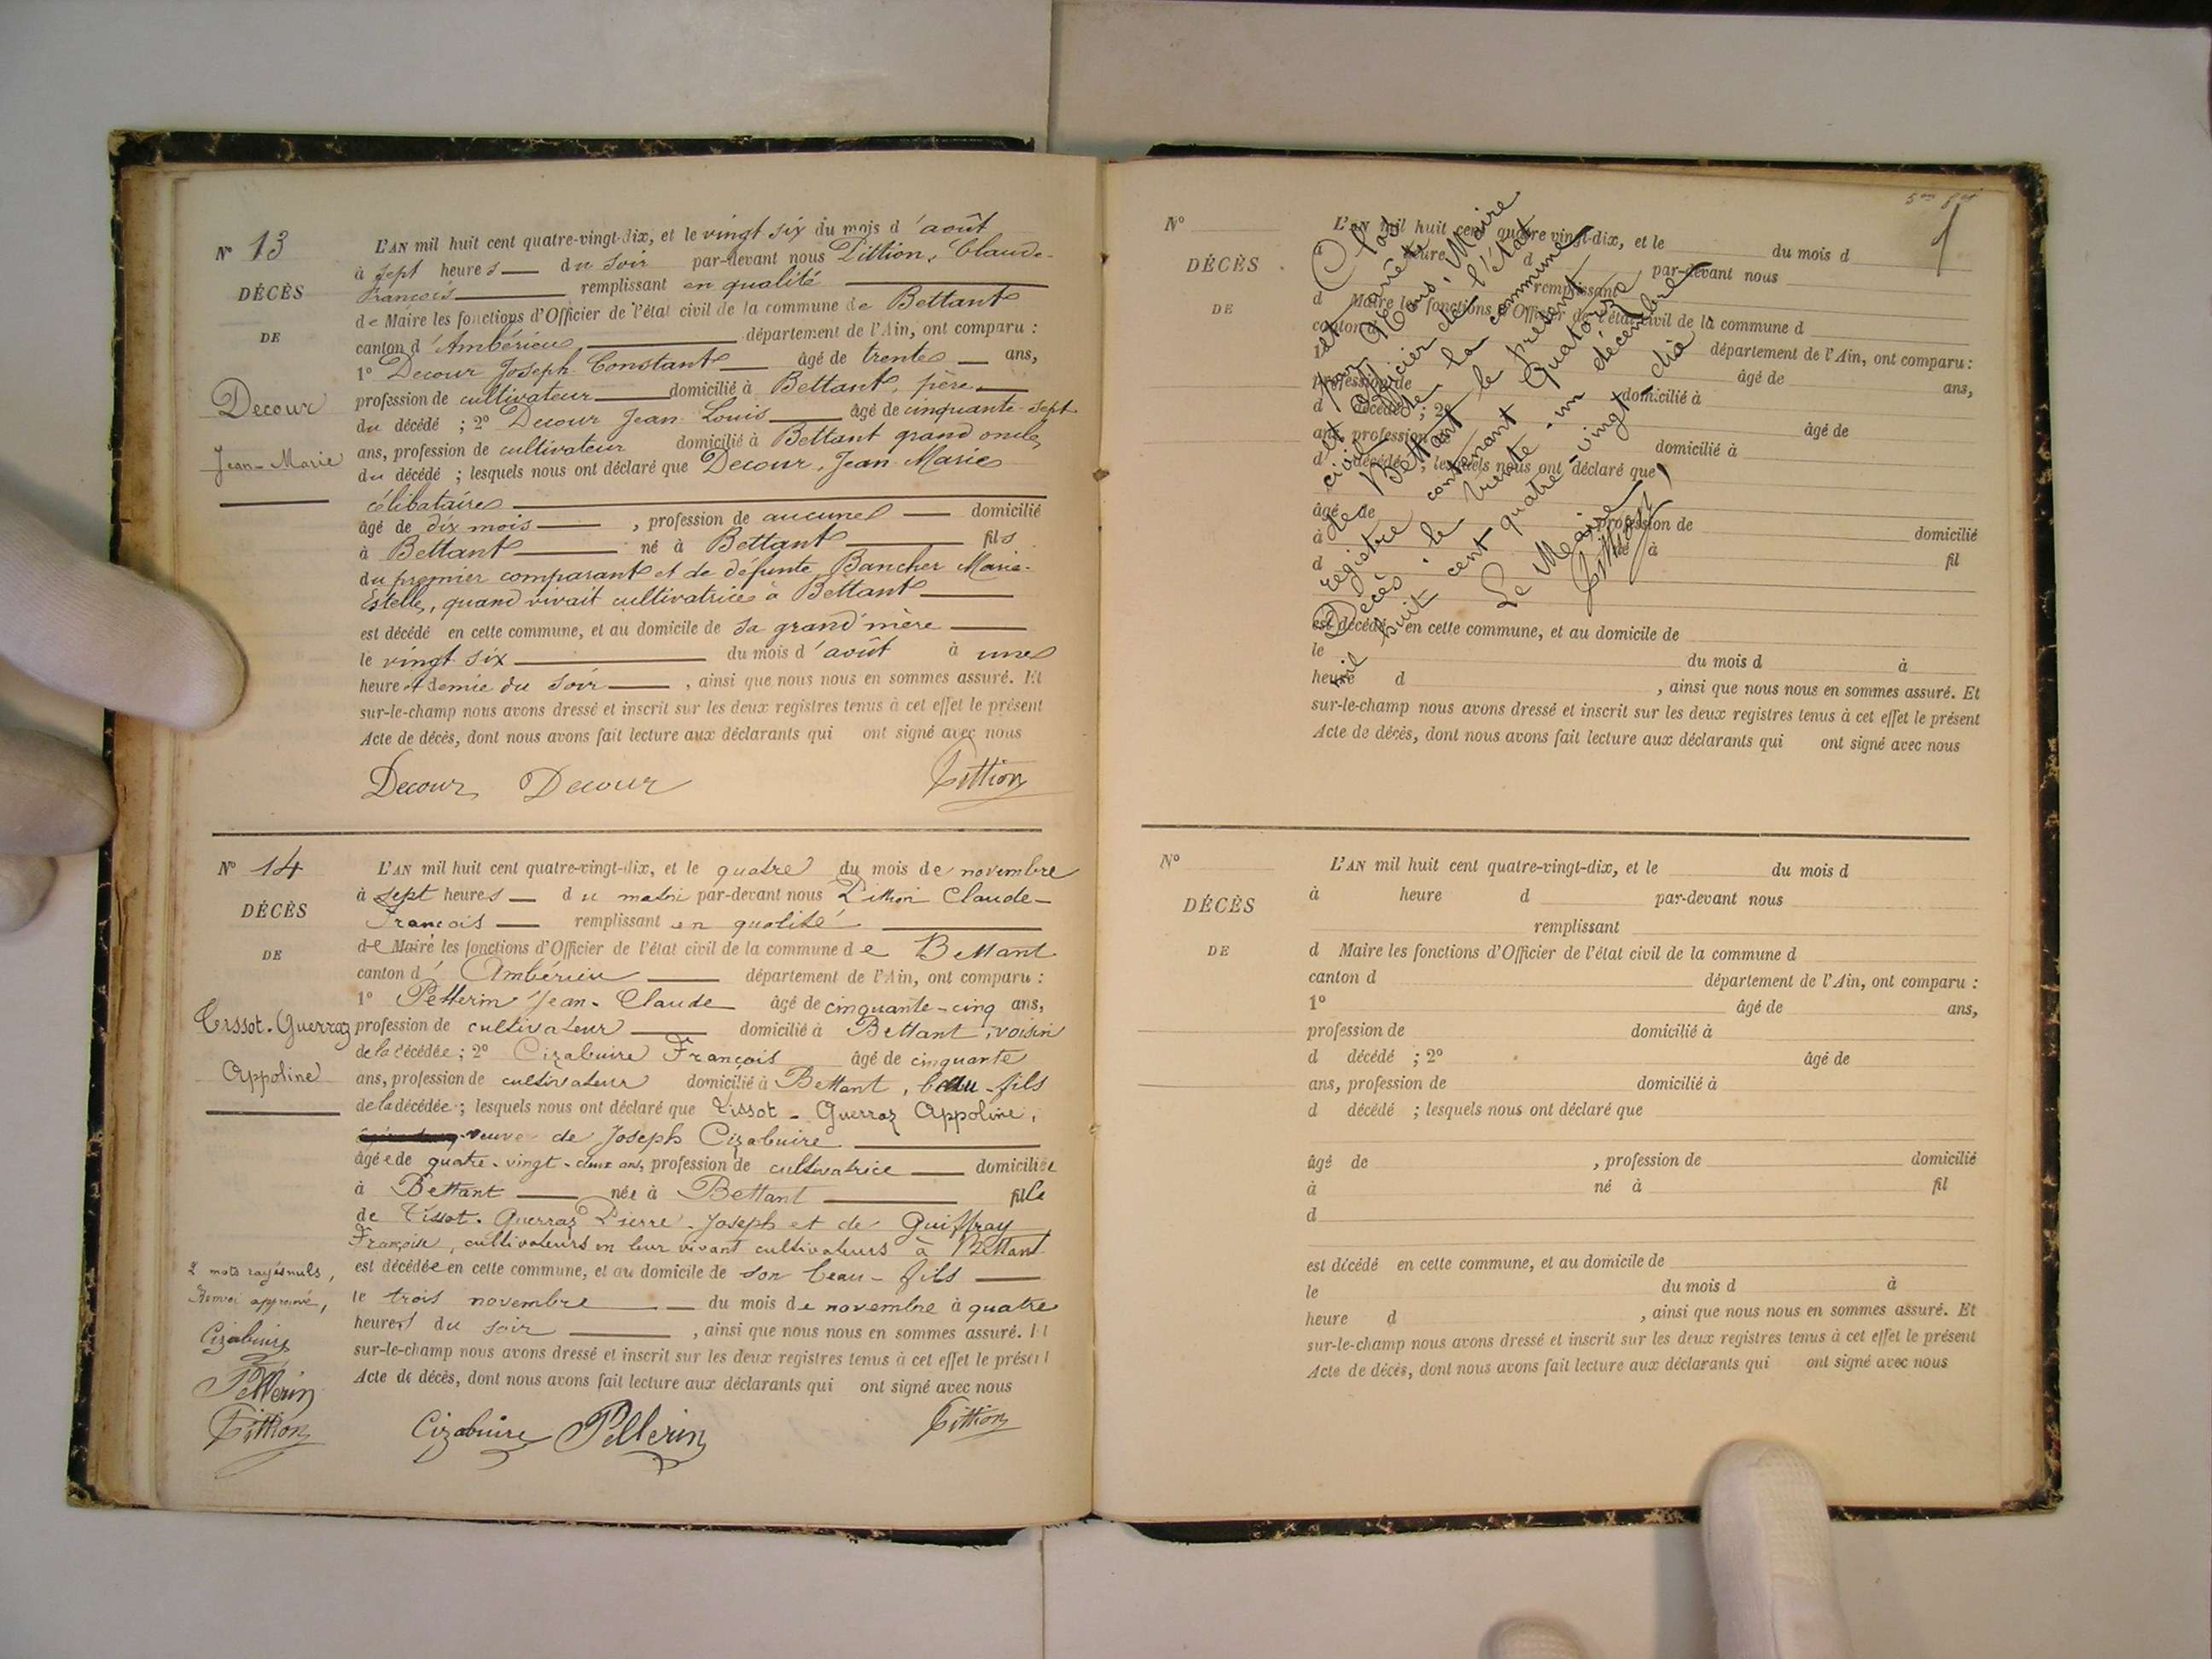 N° 13
DÉCÈS
DE
Decour
Jean-Marie
L'AN mil huit cent quatre-vingt-dix, et le vingt six du mois d'août
à sept heures du soir par-devant nous Pittion, Claude-
François remplissant en qualité
de Maire les fonctions d'Officier de l'état civil de la commune de Bettant
canton d'Ambérieu département de l'Ain, ont comparu :
1° Decour Joseph Constant âgé de trente ans,
profession de cultivateur domicilié à Bettant, père
du décédé ; 2° Decour Jean Louis âgé de cinquante-sept
ans, profession de cultivateur domicilié à Bettant grand oncle
du décédé ; lesquels nous ont déclaré que Decour, Jean-Marie
célibataire
âgé de dix mois , profession de aucune domicilié
à Bettant né à Bettant fils
du premier comparant et de défunte Bancher Marie-
Estelle, quand vivait cultivatrice à Bettant
est décédé en cette commune, et au domicile de sa grand'mère
le vingt six du mois d'août à une
heure et demie du soir , ainsi que nous nous en sommes assuré. Et
sur-le-champ nous avons dressé et inscrit sur les deux registres tenus à cet effet le présent
Acte de décès, dont nous avons fait lecture aux déclarants qui ont signé avec nous
Decour Decour Pittion
N° 14
DÉCÈS
DE
Tissot-Guerraz
Appoline
L'AN mil huit cent quatre-vingt-dix, et le quatre du mois de novembre
à sept heures du matin par-devant nous Pittion Claude-
François remplissant en qualité
de Maire les fonctions d'Officier de l'état civil de la commune de Bettant
canton d'Ambérieu département de l'Ain, ont comparu :
1° Pellerin Jean-Claude âgé de cinquante-cinq ans,
profession de cultivateur domicilié à Bettant, voisin
de la décédée ; 2° Cizabuire François âgé de cinquante
ans, profession de cultivateur domicilié à Bettant, beau-fils
de la décédée ; lesquels nous ont déclaré que Tissot-Guerraz Appoline,
veuve de Joseph Cizabuire
âgée de quatre-vingt-deux ans, profession de cultivatrice domiciliée
à Bettant née à Bettant fille
de Tissot-Guerraz Pierre-Joseph et de Guiffray
Françoise, cultivateurs en leur vivant cultivateurs à Bettant
est décédée en cette commune, et au domicile de son beau-fils
le trois novembre du mois de novembre à quatre
heures du soir , ainsi que nous nous en sommes assuré. Et
sur-le-champ nous avons dressé et inscrit sur les deux registres tenus à cet effet le présent
Acte de décès, dont nous avons fait lecture aux déclarants qui ont signé avec nous
2 mots rayés nuls,
Renvoi approuvé,
Cizabuire
Pellerin
Pittion
Cizabuire Pellerin Pittion
N°
DÉCÈS
DE
L'AN mil huit cent quatre-vingt-dix, et le du mois d
à heure d par-devant nous
remplissant
d Maire les fonctions d'Officier de l'état civil de la commune d
canton d département de l'Ain, ont comparu :
1° âgé de ans,
profession de domicilié à
d décédé ; 2° âgé de
ans, profession domicilié à
d décédé ; lesquels nous ont déclaré que
âgé de profession de domicilié
à né à fil
d
est décédé en cette commune, et au domicile de
le du mois d à
heure d , ainsi que nous nous en sommes assuré. Et
sur-le-champ nous avons dressé et inscrit sur les deux registres tenus à cet effet le présent
Acte de décès, dont nous avons fait lecture aux déclarants qui ont signé avec nous
Clos
et arrêté
par Nous, Maire
et Officier de l'état
civil de la commune
de Bettant le présent
registre contenant Quatorze
Décès le trente-un décembre
mil huit cent quatre vingt dix
Le Maire,
Pittion
N°
DÉCÈS
DE
L'AN mil huit cent quatre-vingt-dix, et le du mois d
à heure d par-devant nous
remplissant
d Maire les fonctions d'Officier de l'état civil de la commune d
canton d département de l'Ain, ont comparu :
1° âgé de ans,
profession de domicilié à
d décédé ; 2° âgé de
ans, profession de domicilié à
d décédé ; lesquels nous ont déclaré que
âgé de , profession de domicilié
à né à fil
d
est décédé en cette commune, et au domicile de
le du mois d à
heure d , ainsi que nous nous en sommes assuré. Et
sur-le-champ nous avons dressé et inscrit sur les deux registres tenus à cet effet le présent
Acte de décès, dont nous avons fait lecture aux déclarants qui ont signé avec nous